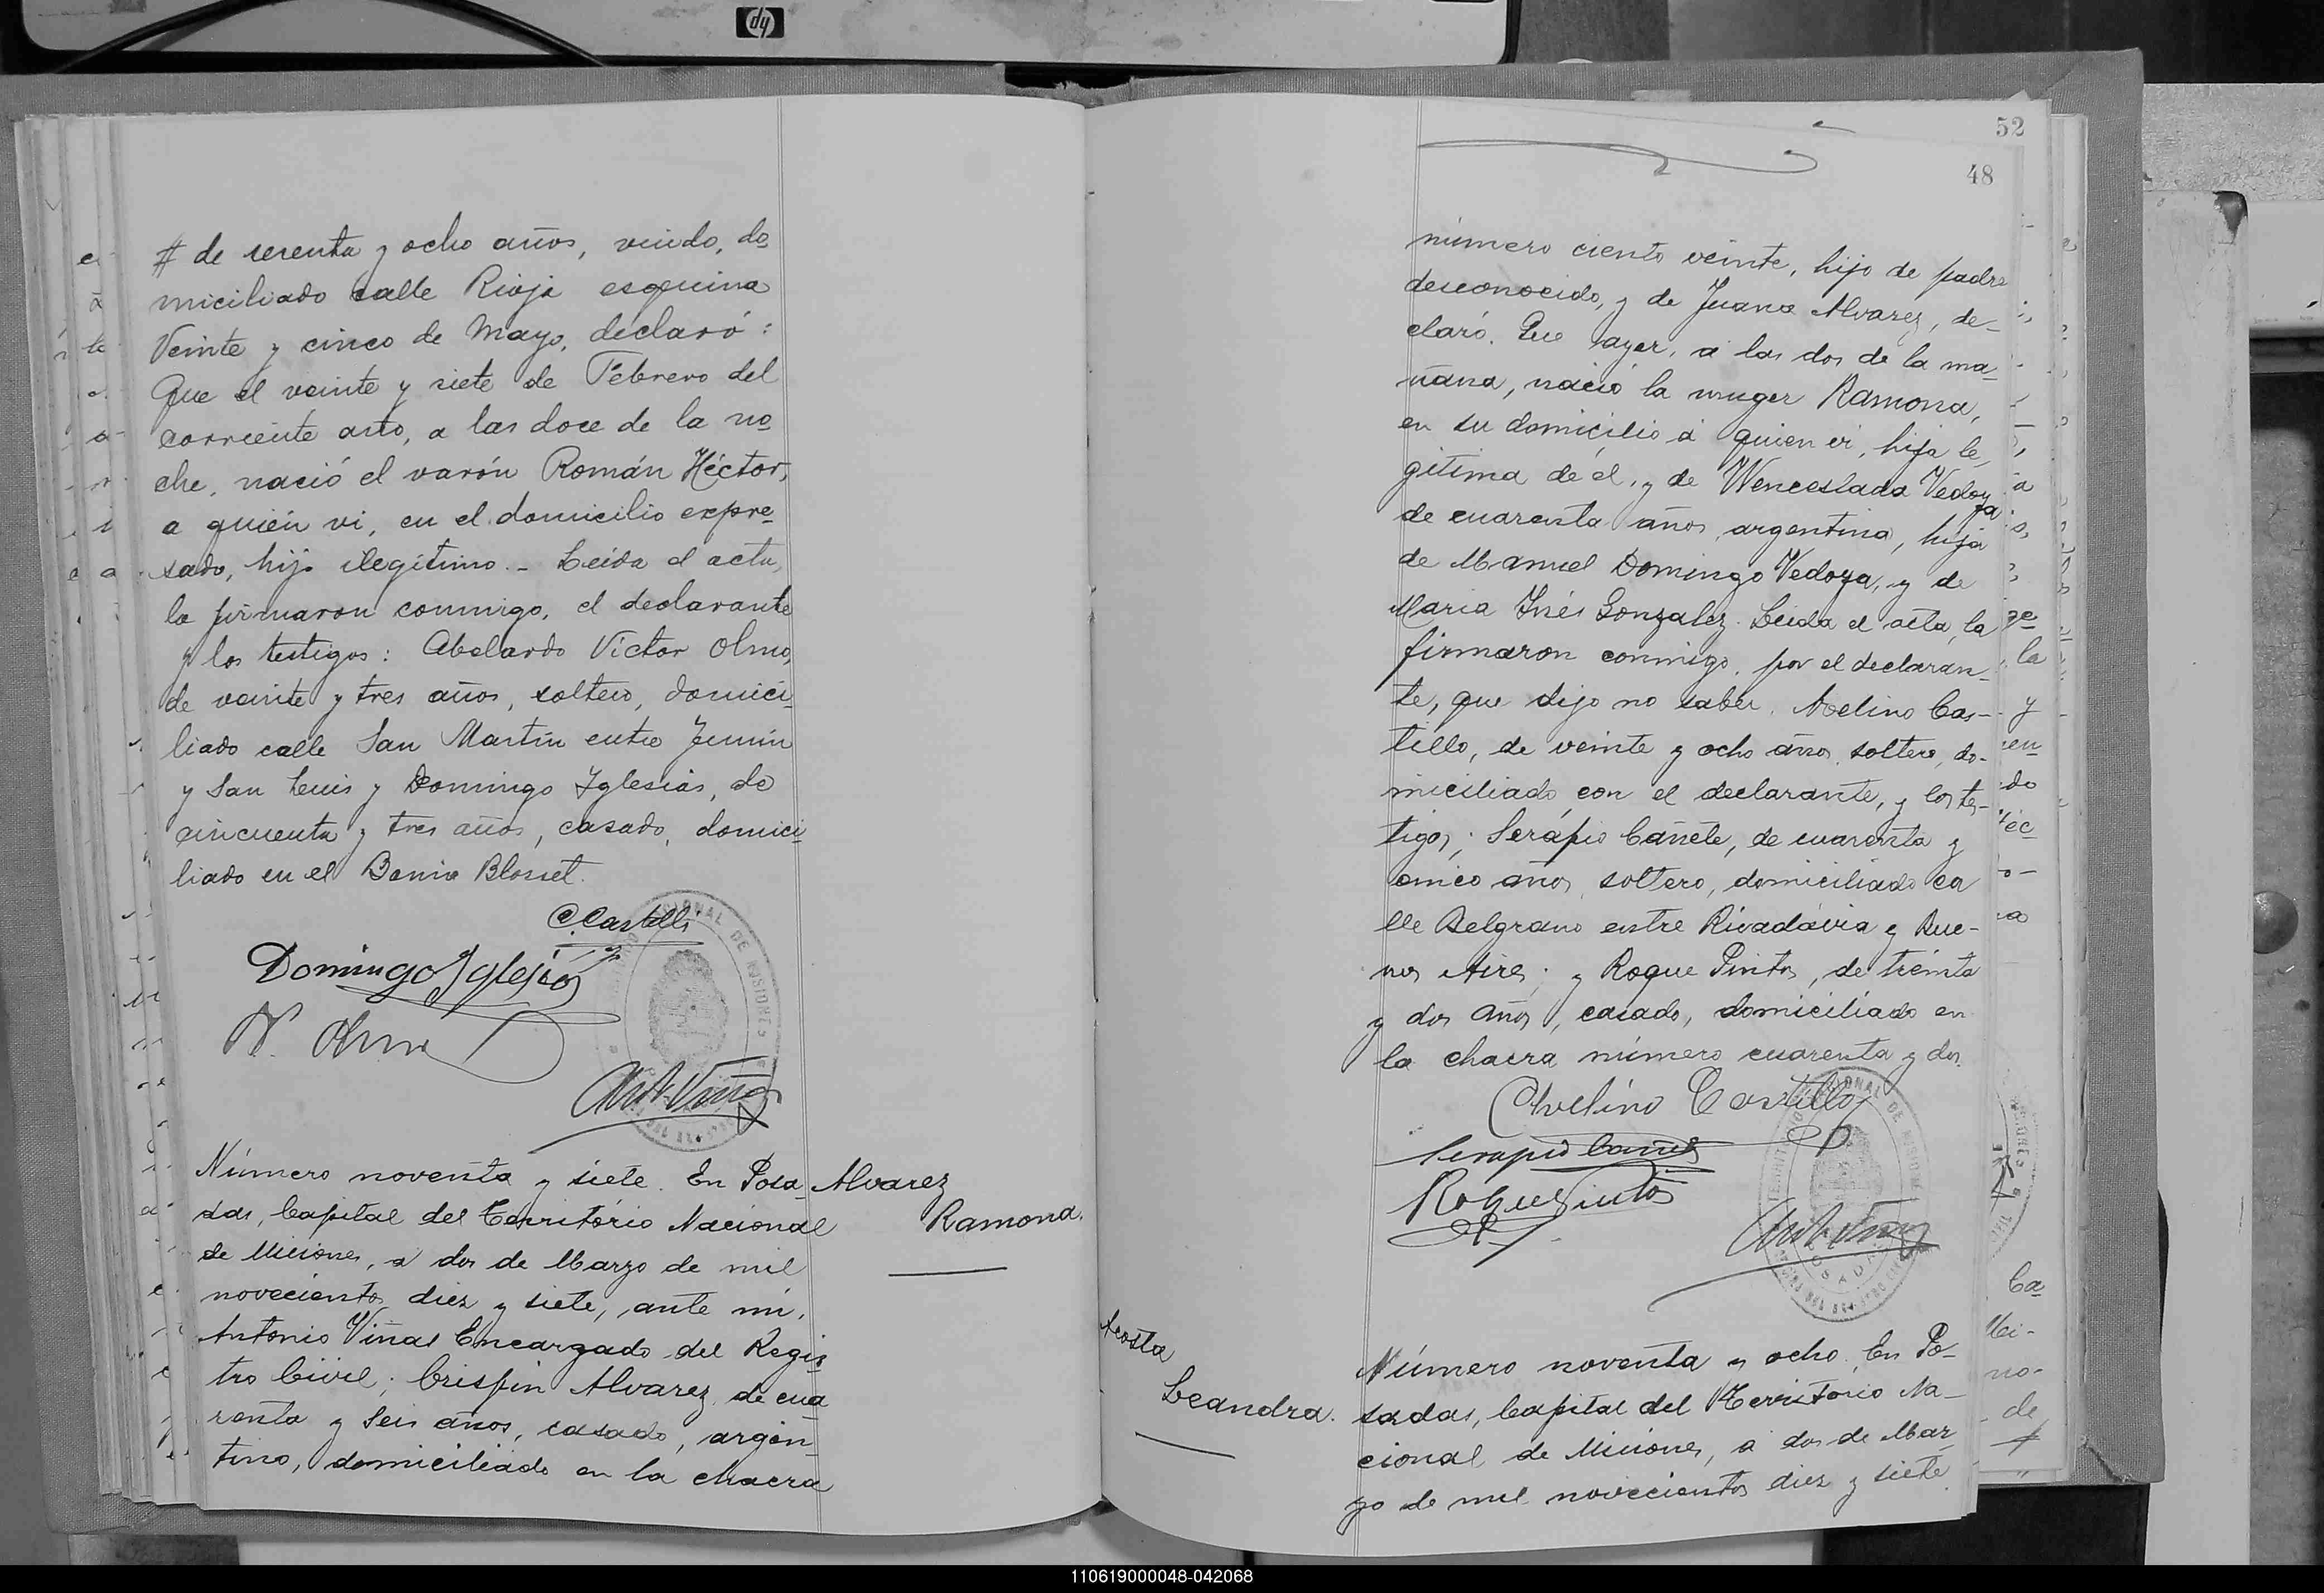 hp
# de sesenta y ocho años, viudo, do
miciliado calle Rioja esquina
Veinte y cinco de Mayo, declaró:
Que el veinte y siete de Febrero del
corriente año, a las doce de la no
che, nació el varón Román Héctor,
a quién vi, en el domicilio expre
sado, hijo ilegítimo. - Leída el acta,
la firmaron conmigo, el declarante
y los testigos: Abelardo Víctor Olmo,
de veinte y tres años, soltero, domici
liado calle San Martín entre Junín
y San Luis y Domingo Iglesias, de
cincuenta y tres años, casado, domici
liado en el Barrio Blosset.
C. Castelli
Domingo Yglesias
A. Olmo
Ant. Viñas
Número noventa y siete. En Posa
das, Capital del Território Nacional
de Misiones, a dos de Marzo de mil
novecientos diez y siete, ante mí,
Antonio Viñas Encargado del Regis
tro Civil; Crispin Alvarez, de cua
renta y seis años, casado, argen-
tino, domiciliado en la chacra
Alvarez
Ramona.
52
48
número ciento veinte, hijo de padre
desconocido, y de Juana Alvarez, de-
claró. Que ayer, a las dos de la ma-
ñana, nació la muger Ramona,
en su domicilio á quien vi, hija le-
gítima de él, y de Wenceslada Vedoya
de cuarenta años, argentina, hija
de Manuel Domingo Vedoya, y de
Maria Inés Gonzalez. Leida el acta, la
firmaron conmigo, por el declaran-
te, que dijo no saber, Avelino Cas-
tillo, de veinte y ocho años, soltero, do-
miciliado con el declarante, y los tes-
tigos; Serápio Cañete, de cuarenta y
cinco años, soltero, domiciliado ca
lle Belgrano entre Rivadávia y Bue-
nos Aires; y Roque Pintos, de treinta
y dos años, casado, domiciliado en
la chacra número cuarenta y dos.
Avelino Castillo
Serapio Cañete
Roque Pintos
Ant. Viñas
Acosta
Leandra.
Número noventa y ocho. En Po-
sadas, Capital del Território Na-
cional de Misiones, a dos de Mar
zo de mil novecientos diez y siete
110619000048-042068